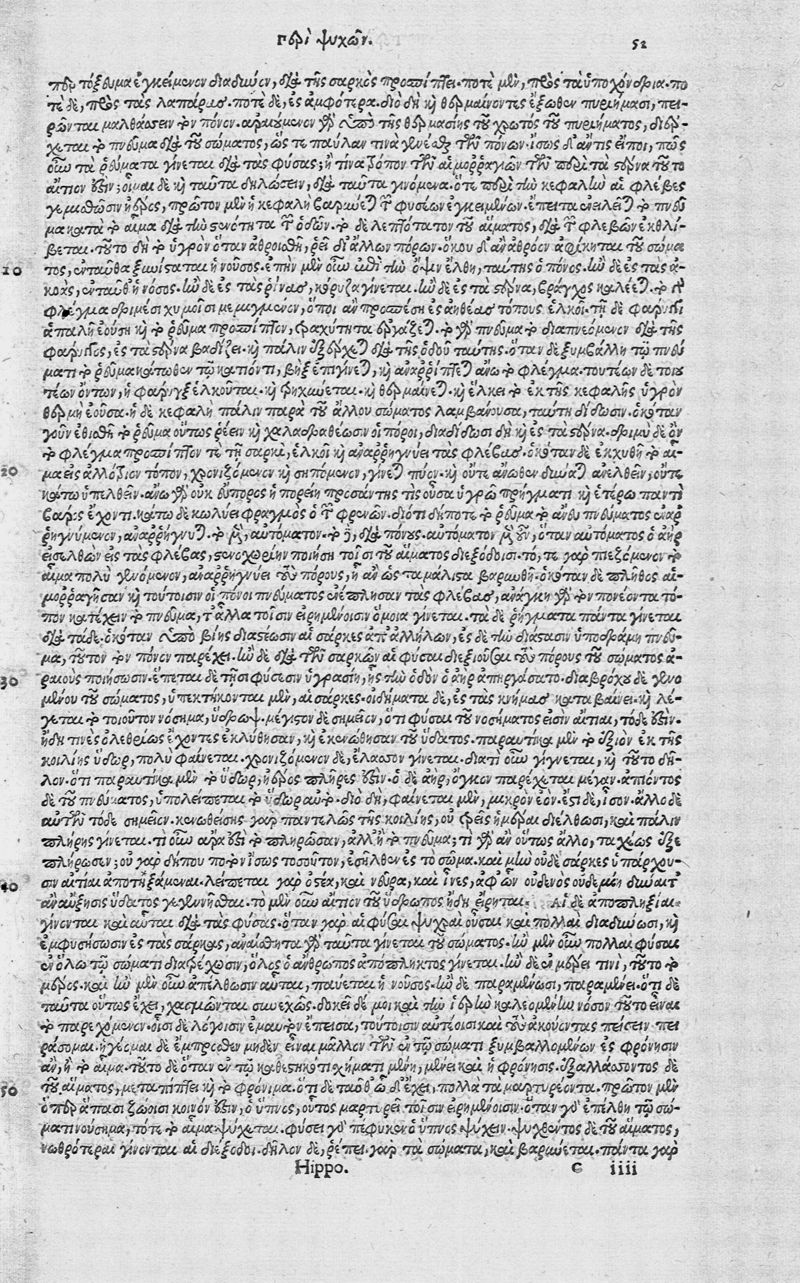 Περὶ ψυχῶν. 52
περ τόξευμα ἐγκείμενον διαδιών, διὰ τῆς σαρκὸς προσπίπτει. ποτὲ μὲν, πρὸς τὰ ὑποχόνδρια. πο-
τὲ δὲ, πρὸς τὰς λαπάρας. ποτὲ δὲ, ἐς ἀμφότερα. διὸ δὴ καὶ θερμαίνοντες ἔξωθεν πυριήμασι, πει-
ρῶνται μαλθάσσειν τὸν πόνον. ἀραιούμενον γὰρ ὑπὸ τῆς θερμασίης τοῦ χρωτὸς τοῦ πυριήματος, διέρ-
χεται τὸ πνεῦμα διὰ τοῦ σώματος, ὥς τε παῦλαν τινὰ γενέσθαι τῶν πόνων. ἴσως δ' ἄντις εἴποι, πῶς
οὖν τὰ ῥεύματα γίνεται διὰ τὰς φύσας; ἢ τίνα τρόπον τῶν αἱμορραγιῶν τῶν περὶ τὰ στέρνα τοῦτο
αἴτιον ἐστιν; οἶμαι δὲ καὶ ταῦτα δηλώσειν, διὰ ταῦτα γινόμενα. ὅτε περὶ τὴν κεφαλὴν αἱ φλέβες
γεμισθῶσιν ἠέρος, πρῶτον μὲν ἡ κεφαλὴ βαρύνεται τῶν φυσέων ἐγκειμένων. ἔπειτα εἱλεῖται τὸ πνεῦ-
μα κατὰ τὸ αἷμα διὰ τὴν στενότητα τῶν ὁδῶν. τὸ δὲ λεπτότατον τοῦ αἵματος, διὰ τῶν φλεβῶν ἐκθλί-
βεται. τοῦτο δὴ τὸ ὑγρὸν ὅταν ἀθροισθῇ, ῥεῖ δι' ἄλλων πόρων. ὅκου δ' ἂν ἀθρόον ἀφίκηται τοῦ σώμα-
10 τος, ἐνταῦθα ξυνίσταται ἡ νοῦσος. ἐπὴν μὲν οὖν ἐπὶ τὴν ὄψιν ἔλθῃ, ταύτης ὁ πόνος. ἢν δὲ ἐς τὰς ἀ-
κοὰς, ἐνταῦθ' ἡ νόσος. ἢν δὲ ἐς τὰς ῥίνας, κόρυζα γίνεται. ἢν δὲ ἐς τὰ στέρνα, βράγχος καλέεται. τὸ γὰρ
φλέγμα δριμέσι χυμοῖσι μεμιγμένον, ὅποι ἂν προσπέσῃ ἐς ἀήθεας τόπους ἑλκοῖ. τῇ δὲ φάρυγγι
ἁπαλῇ ἐούσῃ καὶ τὸ ῥεῦμα προσπίπτον, τραχύτητα ἐργάζεται. τὸ γὰρ πνεῦμα τὸ διαπνεόμενον διὰ τῆς
φάρυγγος, ἐς τὰ στέρνα βαδίζει. καὶ πάλιν ἐξέρχεται διὰ τῆς ὁδοῦ ταύτης. ὅταν δὲ ξυμβάλλῃ τῷ πνεύ-
ματι τὸ ῥεῦμα κάτωθεν τῷ κατιόντι, βὴξ ἐπιγίνεται, καὶ ἀναρρίπτεται ἄνω τὸ φλέγμα. τουτέων δὲ τοιου-
τέων ὄντων, ἡ φάρυγξ ἑλκοῦται. καὶ τρηχύεται. καὶ θερμαίνεται. καὶ ἕλκει τὸ ἐκ τῆς κεφαλῆς ὑγρὸν
θερμὴ ἐοῦσα. ἡ δὲ κεφαλὴ πάλιν παρὰ τοῦ ἄλλου σώματος λαμβάνουσα, ταύτῃ δίδωσιν. ὁκόταν
γοῦν ἐθισθῇ τὸ ῥεῦμα οὕτως ῥέειν καὶ χαλασραθέωσιν οἱ πόροι, διαδίδωσι δὴ καὶ ἐς τὰ στέρνα. δριμὺ δὲ ὂν
τὸ φλέγμα προσπίπτόν τε τῇ σαρκὶ, ἑλκοῖ καὶ ἀναρρηγνύει τὰς φλέβας. ὁκόταν δὲ ἐκχυθῇ τὸ αἷ-
20 μα εἰς ἀλλότριον τόπον, χρονιζόμενον καὶ σηπόμενον, γίνεται πύον. καὶ οὔτε ἄνωθεν δύναται ἀνελθεῖν, οὔτε
κάτω ὑπελθεῖν. ἄνω γὰρ οὐκ εὔπορος ἡ πορείη προσάντης τις οὖσα ὑγρῷ πρήγματι καὶ ἑτέρῳ παντὶ
βάρος ἔχοντι. κάτω δὲ κωλύει φραγμὸς ὁ τῶν φρενῶν. διότι δήποτε τὸ ῥεῦμα τὸ ἄνευ πνεύματος ἀναρ-
ρηγνύμενον, ἀναρρήγνυται. τὸ μὲν, αὐτόματον. τὸ δὲ, διὰ πόνους. αὐτόματον μὲν οὖν, ὅταν αὐτόματος ὁ ἀὴρ
εἰσελθὼν εἰς τὰς φλέβας, στενοχωρίην ποιήσῃ τοῖσι τοῦ αἵματος διεξόδοισι. τό, τε γὰρ πιεζόμενον τὸ
αἷμα πολὺ γενόμενον, ἀναρρηγνύει τοὺς πόρους, ᾗ ἂν ὡς τὰ μάλιστα βαρυνθῇ. ὁκόταν δὲ πλῆθος αἱ-
μορράγησαν καὶ τούτοισιν οἱ πόνοι πνεύματος ἐνέπλησαν τὰς φλέβας, ἀνάγκη γὰρ τὸν πονέοντα τό-
πον κατέχειν τὸ πνεῦμα, τὰ ἄλλα τοῖσιν εἰρημένοισιν ὅμοια γίνεται. τὰ δὲ ῥήγματα πάντα γίνεται
διὰ τάδε. ὁκόταν ὑπὸ βίης διαστέωσιν αἱ σάρκες ἀπ' ἀλλήλων, ἐς δὲ τὴν διάστασιν ὑποδράμῃ πνεῦ-
μα, τοῦτον τὸν πόνον παρέχει. ἢν δὲ διὰ τῶν σαρκῶν αἱ φῦσαι διεξιοῦσαι τοὺς πόρους τοῦ σώματος ἀ-
30 ραιοὺς ποιήσωσιν. ἕπεται δὲ τῇσι φύσεσιν ὑγρασίη, ἧς τὴν ὁδὸν ὁ ἀὴρ ἀπηργάσατο. διαβρόχου δὲ γενο-
μένου τοῦ σώματος, ὑπεκτήκονται μὲν, αἱ σάρκες. οἰδήματα δὲ, ἐς τὰς κνήμας καταβαίνει. καὶ λέ-
γεται τὸ τοιοῦτον νόσημα, ὕδρωψ. μέγιστον δὲ σημεῖον, ὅτι φῦσαι τοῦ νοσήματος εἰσὶν αἴτιαι, τόδε ἐστιν.
ἤδη τινὲς ὀλεθρίως ἔχοντες ἐκλύθησαν, καὶ ἐκενώθησαν τοῦ ὕδατος. παραυτίκα μὲν τὸ ἐξιὸν ἐκ τῆς
κοιλίης ὕδωρ, πολὺ φαίνεται. χρονιζόμενον δὲ, ἔλασσον γίνεται. διατὶ οὖν γίγνεται, καὶ τοῦτο δῆ-
λον. ὅτι παραυτίκα μὲν τὸ ὕδωρ, ἠέρος πλῆρες ἐστιν. ὁ δὲ ἀὴρ, ὄγκον παρέχεται μέγαν. ἀπιόντος
δὲ τοῦ πνεύματος, ὑπολείπεται τὸ ὕδωρ αὐτό. διὸ δὴ, φαίνεται μὲν, μικρὸν ἐόν. ἔστι δὲ, ἴσον. ἄλλο δὲ
αὐτῶν τόδε σημεῖον. κενωθείσης γὰρ παντελῶς τῆς κοιλίης, οὐ τρεῖς ἡμέραι διέλθωσι, καὶ πάλιν
πλήρης γίνεται. τί οὖν ἄρα ἐστὶ τὸ πληρῶσαν, ἀλλ' ἢ τὸ πνεῦμα; τί γὰρ ἂν οὕτως ἄλλο, ταχέως ἐξε
πλήρωσεν; οὐ γὰρ δήπου ποτὸν ἴσως τοσοῦτον, ἐσῆλθεν ἐς τὸ σῶμα. καὶ μὴν οὐδὲ σάρκες ὑπάρχου-
40 σιν αἴτιαι ἀποτηξάμεναι. λείπεται γὰρ ὀστέα, καὶ νεῦρα, καὶ ἶνες, ἀφ' ὧν οὐδενὸς οὐδεμίη δύναιτ'
ἂν αὔξησις ὕδατος γεγεννῆσθαι. τὸ μὲν οὖν αἴτιον τοῦ ὕδρωπος ἤδη εἴρηται. Αἱ δὲ ἀποπληξίαι
γίνονται καὶ αὗται διὰ τὰς φύσας. ὅταν γὰρ αἱ φῦσαι ψυχραὶ οὖσαι καὶ πολλαὶ διαδύνωσι, καὶ
ἐμφυσήσωσιν ἐς τὰς σάρκας, ἀναίσθητα γὰρ ταῦτα γίνεται τοῦ σώματος. ἢν μὲν οὖν πολλαὶ φῦσαι
ἐν ὅλῳ τῷ σώματι διατρέχωσιν, ὅλος ὁ ἄνθρωπος ἀπόπληκτος γίνεται. ἢν δὲ ἐν μέρει τινὶ, τοῦτο τὸ
μέρος. καὶ ἢν μὲν οὖν ἀπέλθωσιν αὗται, παύεται ἡ νοῦσος. ἢν δὲ παραμένωσι, παραμένει. ὅτι δὲ
ταῦτα οὕτως ἔχει, χασμῶνται συνεχῶς. δοκεῖ δέ μοι καὶ τὴν ἱερὴν καλεομένην νόσον τοῦτο εἶναι
τὸ παρεχόμενον. οἷσι δὲ λόγοισιν ἐμαυτὸν ἔπεισα, τούτοισιν αὐτέοισι καὶ τοὺς ἀκούοντας πείσειν πει
ράσομαι. ἡγεῦμαι δὲ ἔμπροσθεν μηδὲν εἶναι μᾶλλον τῶν ἐν τῷ σώματι ξυμβαλλομένων ἐς φρόνησιν
ἂν, ἢ τὸ αἷμα. τοῦτο δὲ ὅταν ἐν τῷ καθεστηκότι σχήματι μένῃ, μένει καὶ ἡ φρόνησις. ἐξαλλάσσοντος δὲ
50 τοῦ αἵματος, μεταπίπτει καὶ τὸ φρόνιμα. ὅτι δὲ ταῦθ' οὕτω δ' ἔχει, πολλὰ τὰ μαρτυρέοντα. πρῶτον μὲν
ὅπερ ἅπασι ζώοισι κοινόν ἐστιν, ὁ ὕπνος, οὗτος μαρτυρεῖ τοῖσιν εἰρημένοισιν. ὅταν γὰρ ἐπέλθῃ τῷ σώ-
ματι νούσημα, τότε τὸ αἷμα ψύχεται. φύσει γὰρ πέφυκεν ὁ ὕπνος ψύχειν. ψυχθέντος δὲ τοῦ αἵματος,
νωθρότεραι γίνονται αἱ διέξοδοι. δῆλον δὲ, ῥέπει γὰρ τὰ σώματα, καὶ βαρύνεται. πάντα γὰρ
Hippo. G iiii